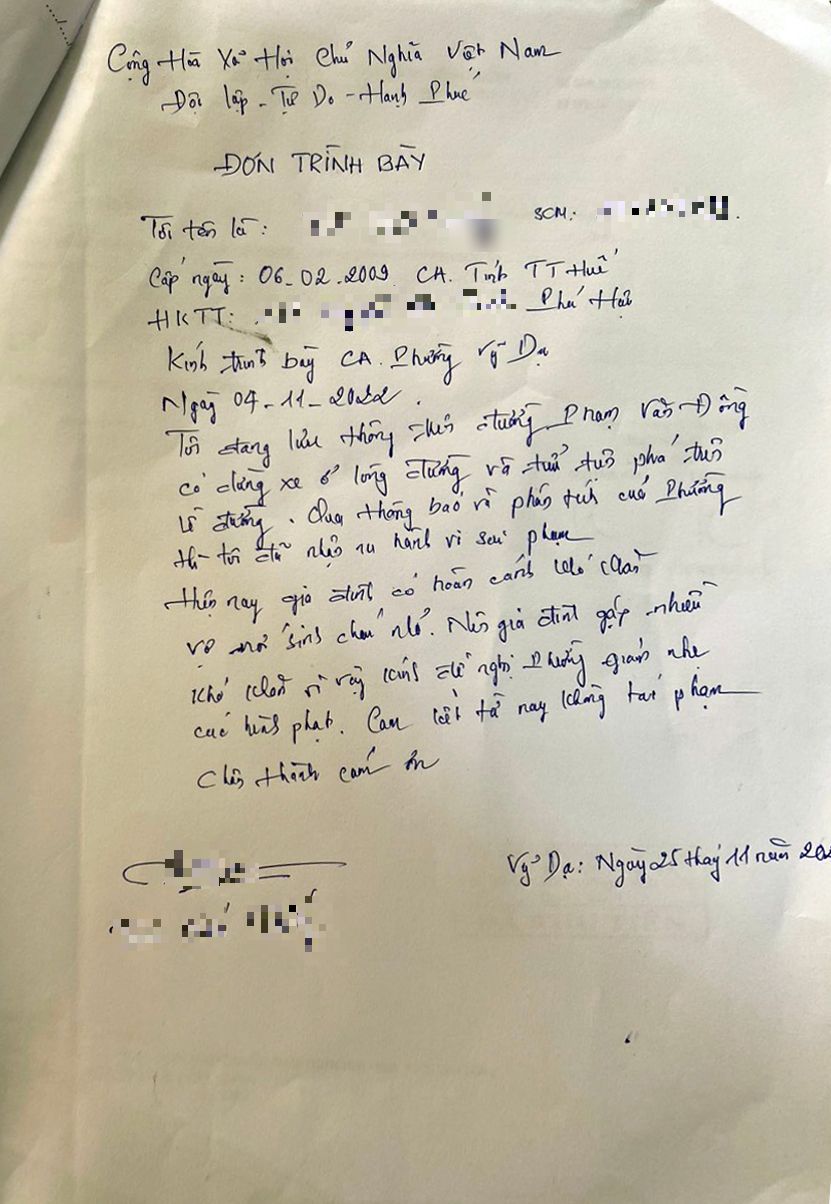 Cộng Hòa Xã Hội Chủ Nghĩa Việt Nam
Độc lập - Tự Do - Hạnh Phúc
ĐƠN TRÌNH BÀY
Tôi tên là: SCM:
Cấp ngày: 06-02-2009 CA. Tỉnh TT Huế
HKTT: Phú Hội
Kính trình bày CA. Phường Vỹ Dạ
Ngày 04-11-2022.
Tôi đang lưu thông trên đường Phạm Văn Đồng
có dừng xe ở lòng đường và phá trên
lề đường. Qua thông báo và phân tích của Phường
thì tôi đã nhận ra hành vi sai phạm
Hiện nay gia đình có hoàn cảnh khó khăn
vợ mới sinh cháu nhỏ. Nên gia đình gặp nhiều
khó khăn vì vậy kính đề nghị Phường giảm nhẹ
các hình phạt. Cam kết từ nay không tái phạm
Chân thành cảm ơn
Vỹ Dạ: Ngày 25 tháng 11 năm 202